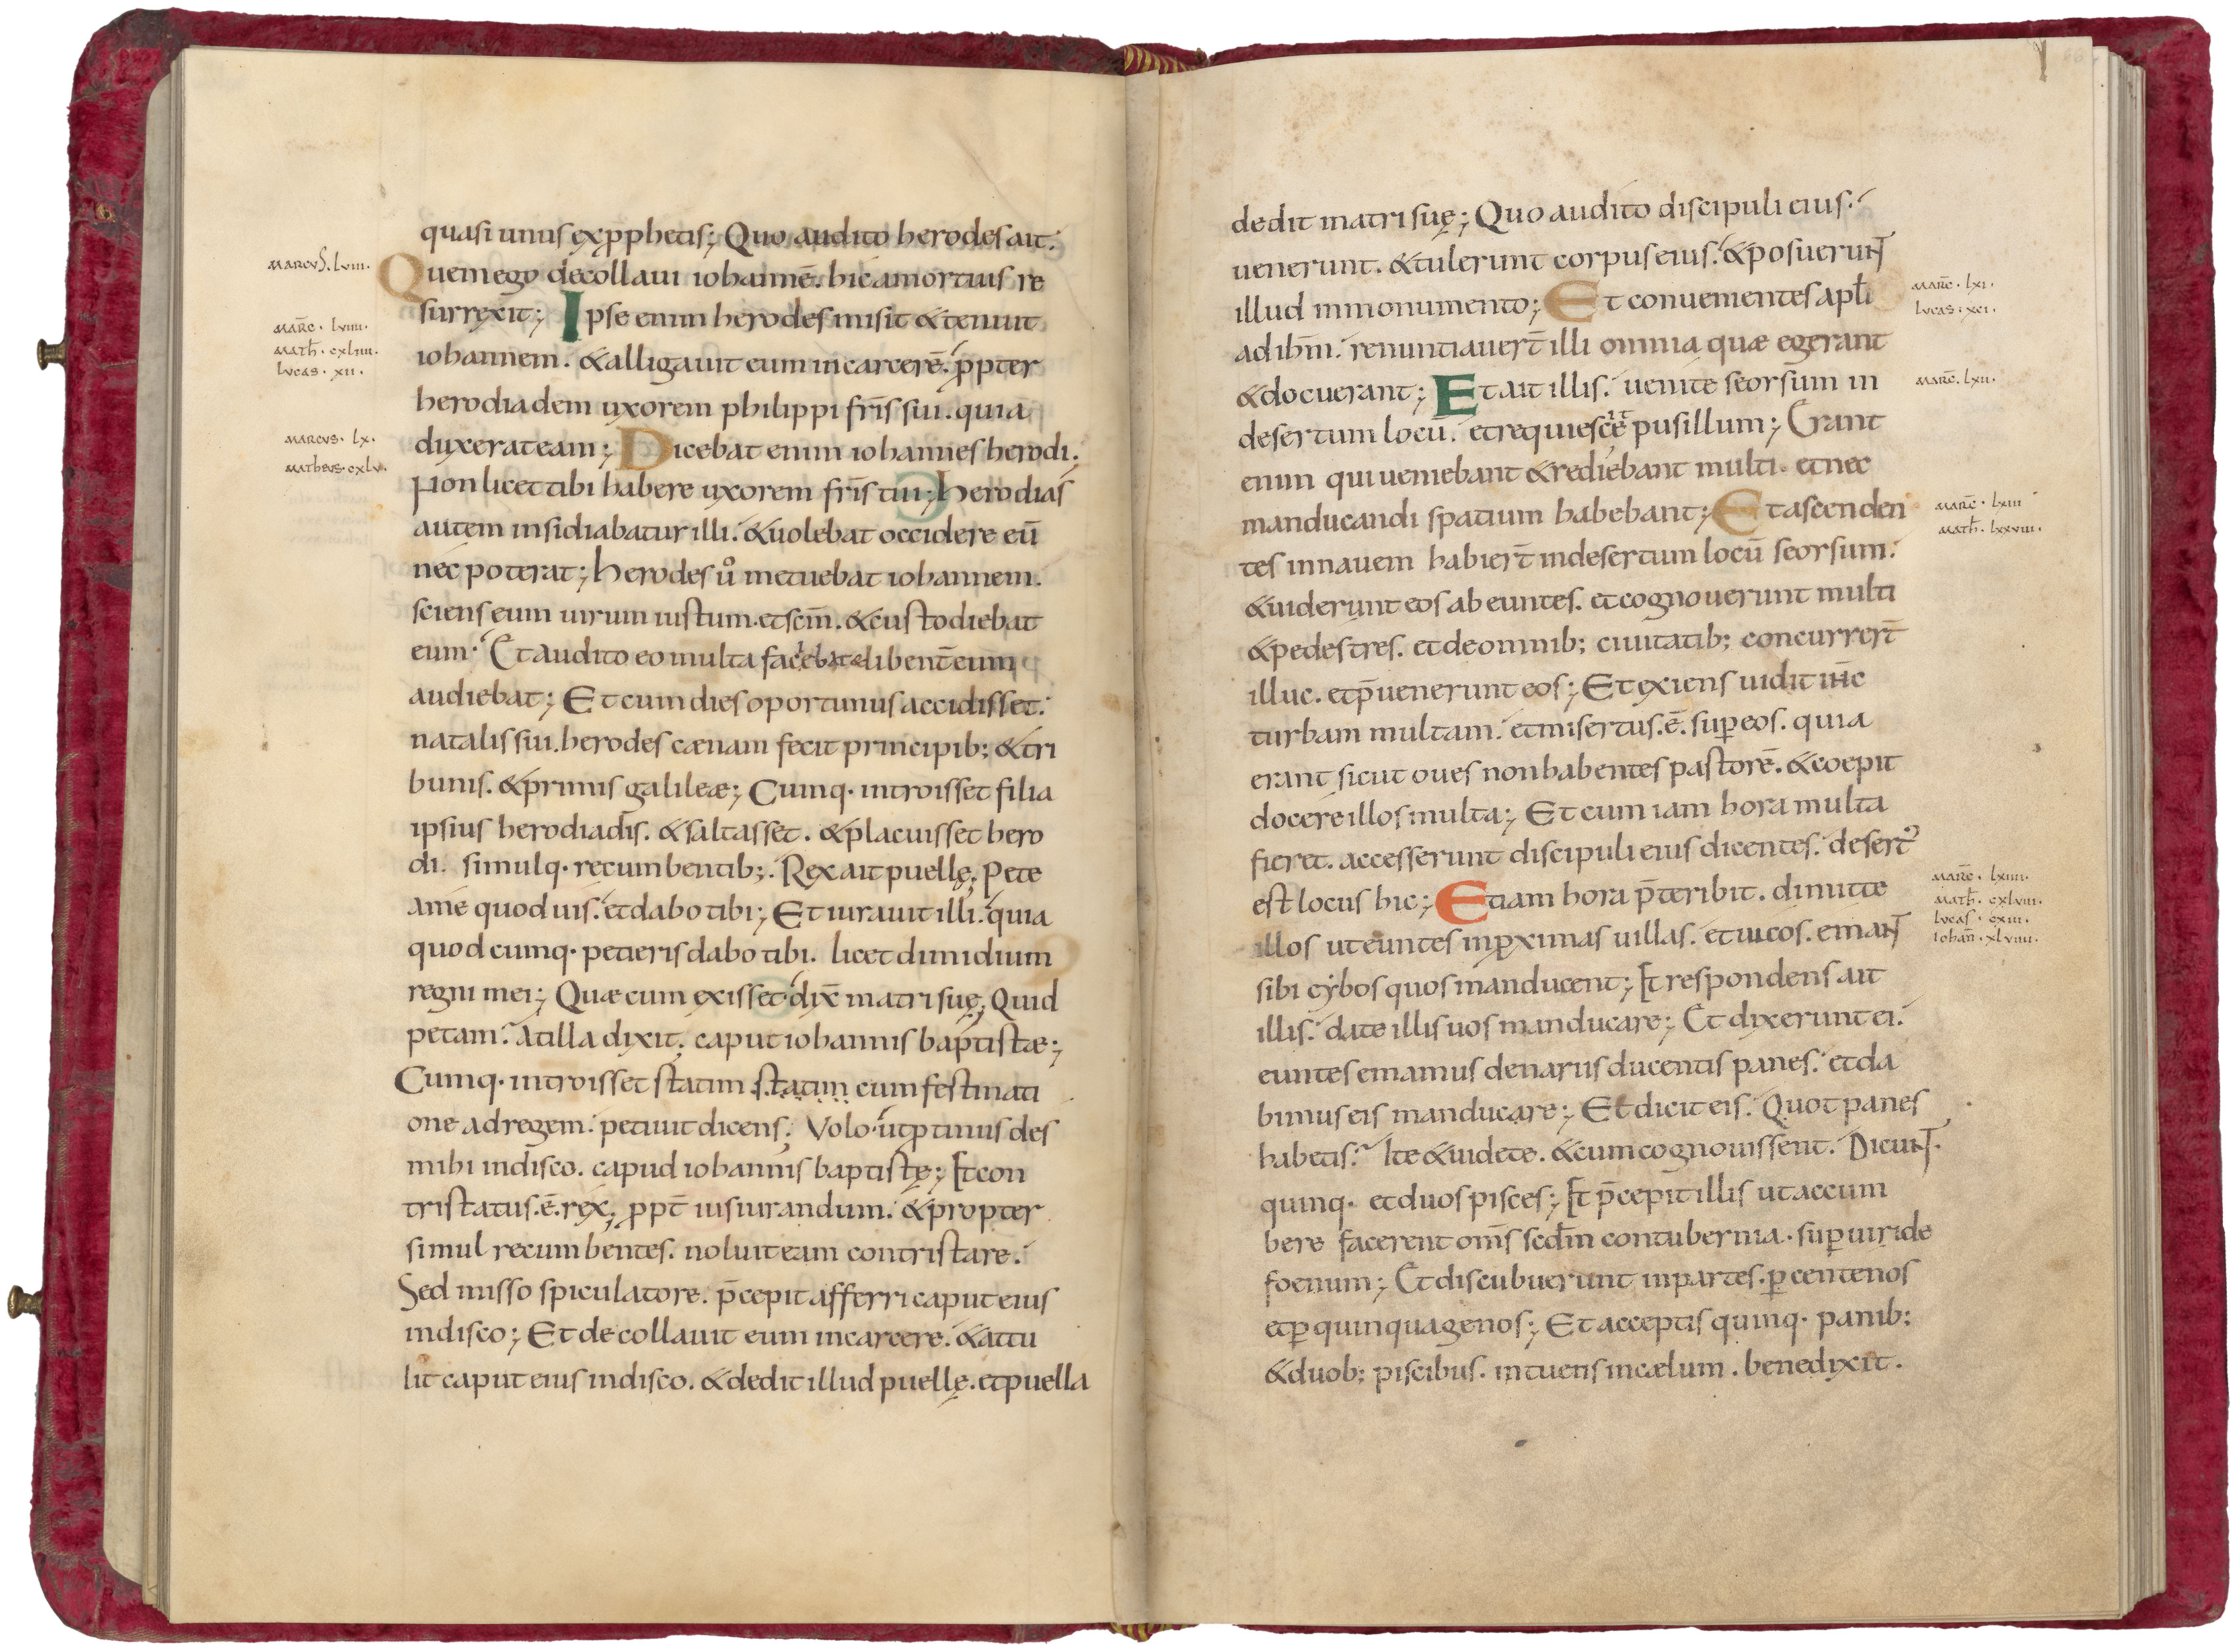 quasi unus ex ꝓphetis; Quo audito herodes ait.
marcus. lviii.
Quem ego decollaui iohannē. hic a mortuis re
surrexit; Ipse enim herodes misit & tenuit
marc̄. lviiii.
math̄. cxliiii.
lucas. xii.
iohannem. & alligauit eum in carcerē. ꝓpter
herodiadem uxorem philippi fr̄is sui. quia
duxerat eam; Dicebat enim iohannes herodi.
marcus. lx.
matheus. cxlv.
Non licet tibi habere uxorem fr̄is tui; Herodias
autem insidiabatur illi. & uolebat occidere eū
nec poterat; Herodes ů metuebat iohannem.
sciens eum uirum iustum. et sc̄m. & custodiebat
eum. Et audito eo multa faciebat & libent̄ eum
audiebat; Et cum dies oportunus accidisset.
natalis sui. herodes cænam fecit principib; & tri
bunis. & primis galileæ; Cumq. introisset filia
ipsius herodiadis. & saltasset. & placuisset hero
di. simulq. recumbentib;. Rex ait puellę. Pete
a me quod uis. et dabo tibi; Et iurauit illi. quia
quodcumq. petieris dabo tibi. licet dimidium
regni mei; Quæ cum exisset. dix̄ matri suę; Quid
petam. At illa dixit. caput iohannis baptistæ;
Cumq. introisset statim statim cum festinati
one ad regem. petiuit dicens. Volo ut ꝓtinus des
mihi in disco. capud iohannis baptistę; Et con
tristatus. ē. rex. ꝓpt̄ iusiurandum. & propter
simul recumbentes. noluit eam contristare.
Sed misso spiculatore. p̄cepit afferri caput eius
in disco; Et decollauit eum in carcere. & attu
lit caput eius in disco. & dedit illud puellę. et puella
dedit matri suę; Quo audito discipuli eius.
uenerunt. & tulerunt corpus eius. & posuerunt
illud in monumento; Et conuenientes apl̄i
marc̄. lxi.
lucas. xci.
ad ih̄m. renuntiauer̄t illi omnia quæ egerant
& docuerant; Et ait illis. uenite seorsum in
marc̄. lxii.
desertum locū. et requiescite pusillum; Erant
enim qui ueniebant & rediebant multi. et nec
manducandi spatium habebant; Et ascenden
marc̄. lxiii
math̄. lxxviii.
tes in nauem habier̄t in desertum locū seorsum.
& uiderunt eos abeuntes. et cognouerunt multi
& pedestres. et de omnib; ciuitatib; concurrer̄t
illuc. et p̄uenerunt eos; Et exiens uidit ih̄c
turbam multam. et misertus. ē. suꝑ eos. quia
erant sicut oues non habentes pastorē. & coepit
docere illos multa; Et cum iam hora multa
fieret. accesserunt discipuli eius dicentes. desert᾽
est locus hic; Et iam hora p̄teribit. dimitte
marc̄. lxiiii.
math̄. cxlviii.
lucas. cxiii.
iohan̄. xlviiii.
illos ut euntes in ꝓximas uillas. et uicos. emant
sibi cybos quos manducent; Et respondens ait
illis. date illis uos manducare; Et dixerunt ei.
euntes emamus denariis ducentis panes. et da
bimus eis manducare; Et dicit eis. Quot panes
habetis. Ite & uidete. & cum cognouissent. Dicunt.
quinq. et duos pisces; Et p̄cepit illis ut accum
bere facerent om̄s scd̄m contubernia. suꝑ uiride
foenum; Et discubuerunt in partes. ꝑ centenos
et ꝑ quinquagenos; Et acceptis quinq. panib;
& duob; piscibus. intuens in cælum. benedixit.